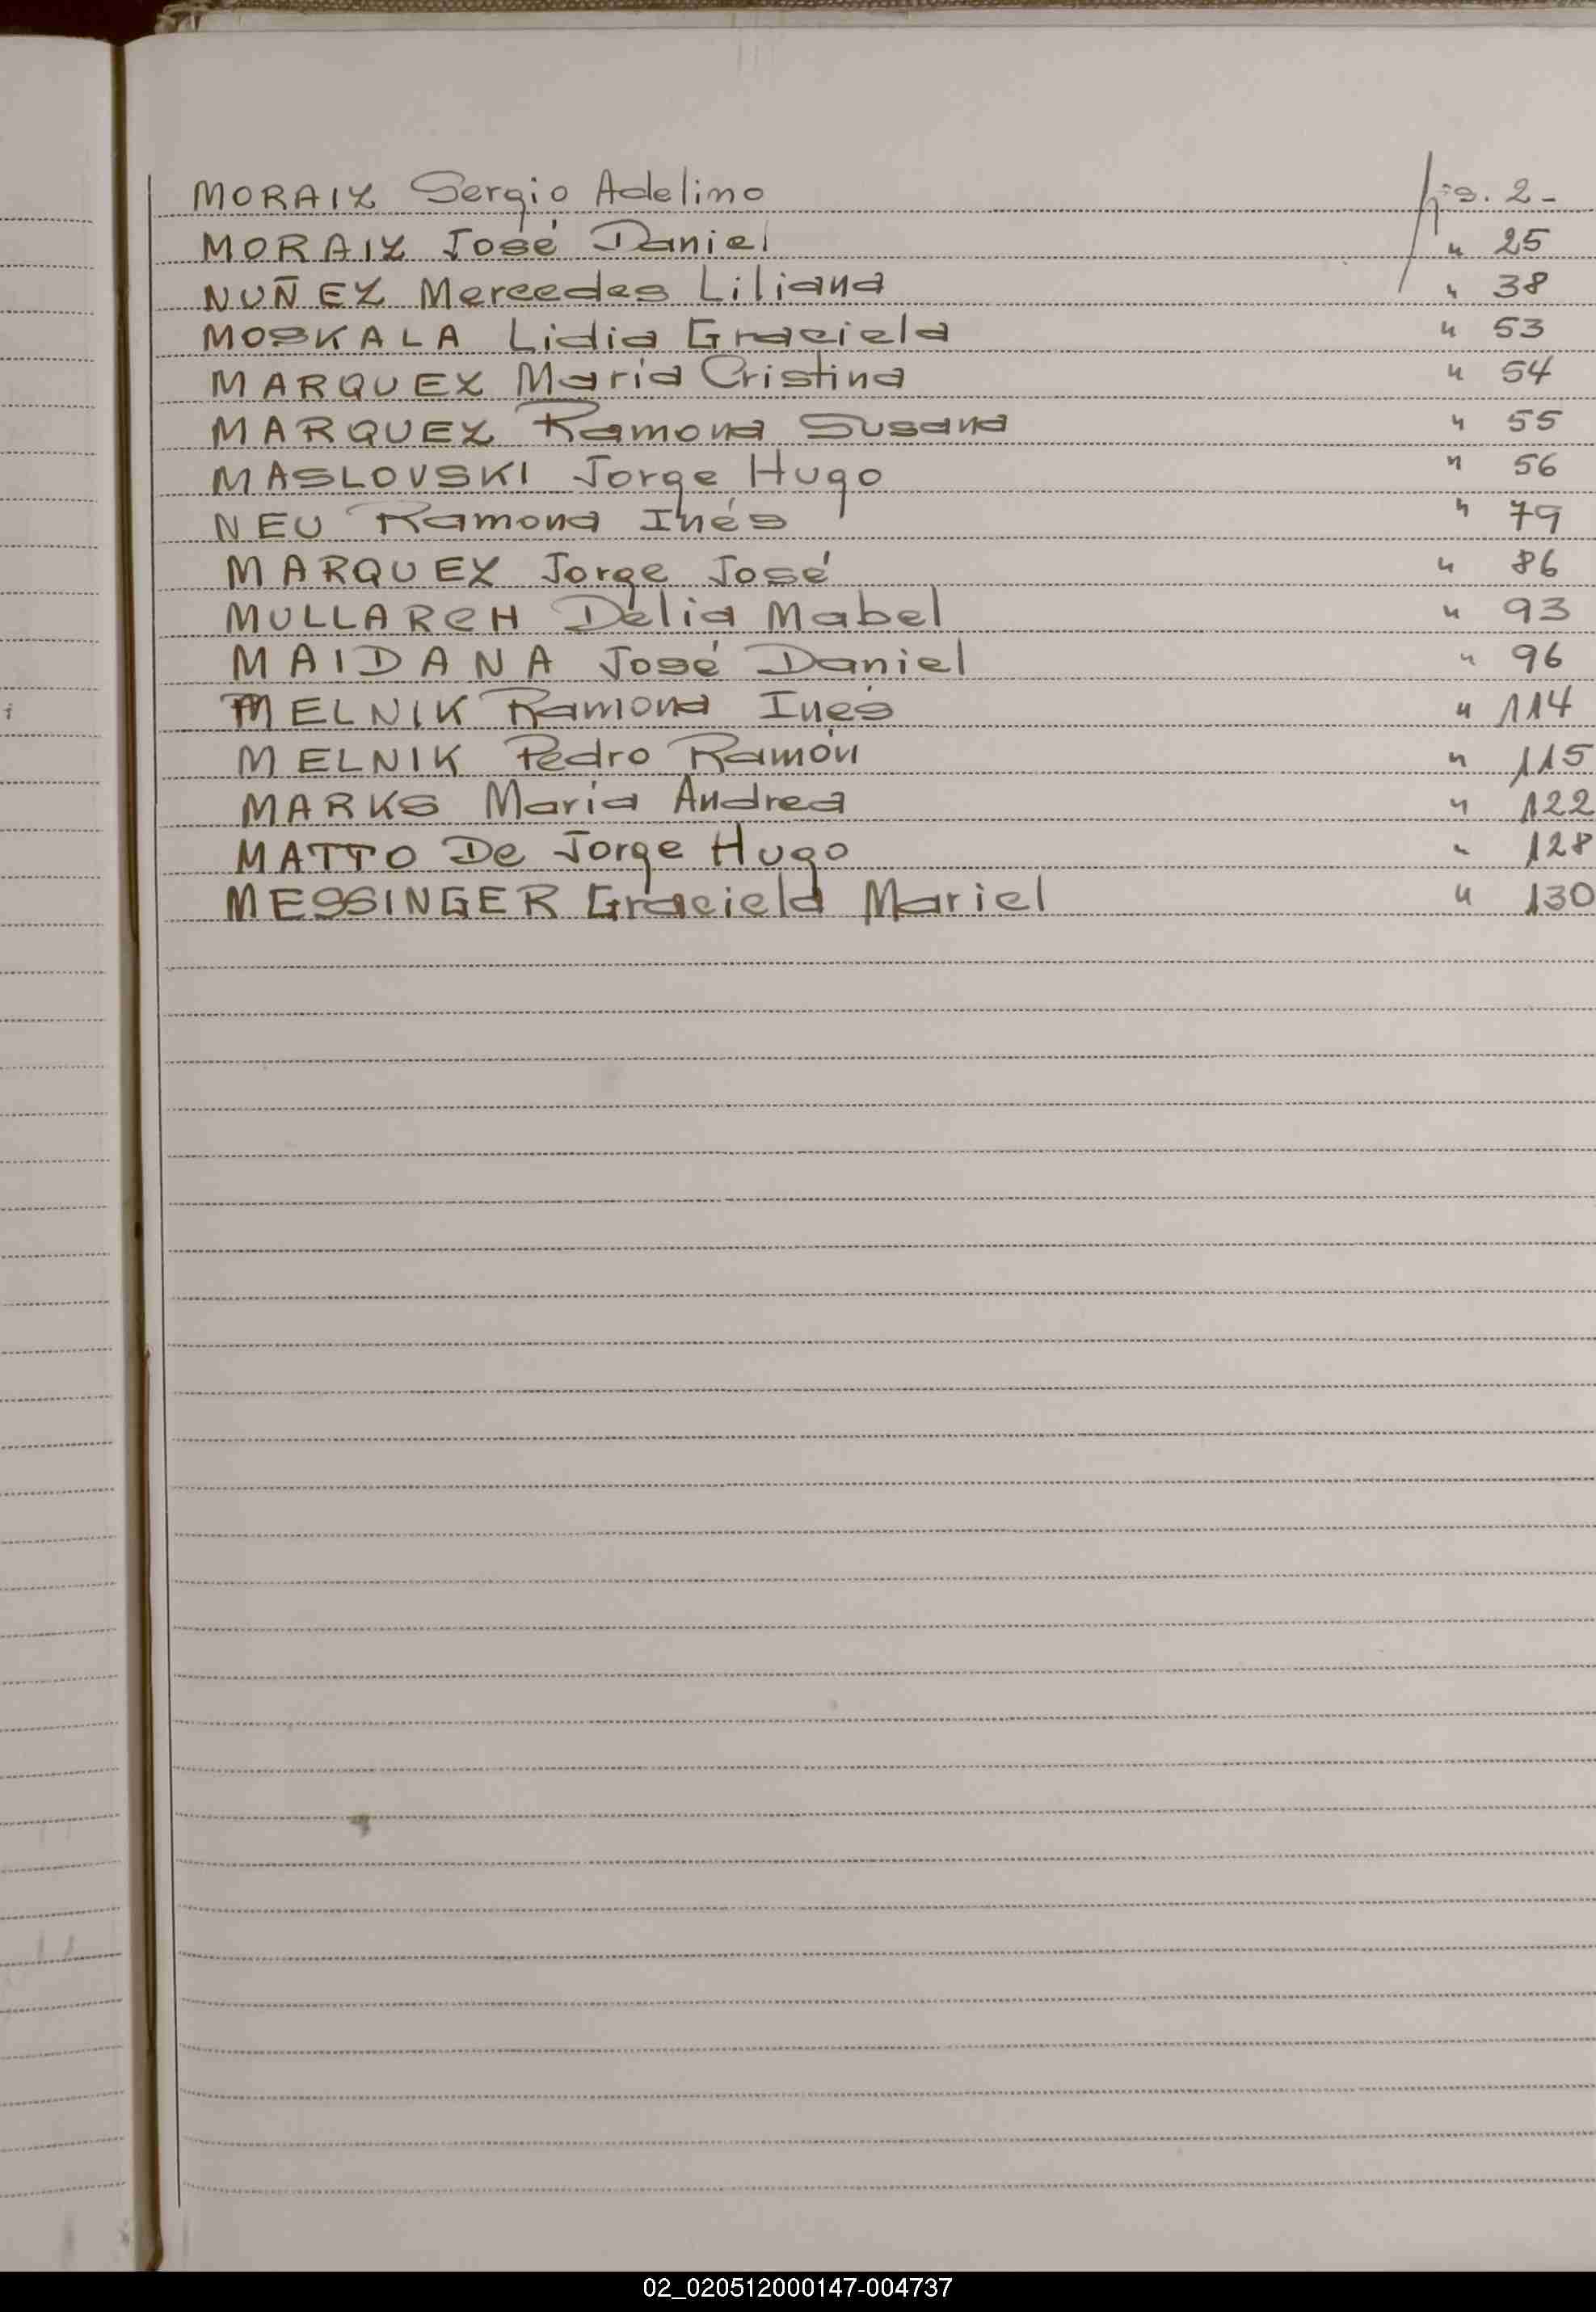 MORAIZ Sergio Adelino fjs. 2-
MORAIZ José Daniel " 25
NUÑEZ Mercedes Liliana " 38
MOSKALA Lidia Graciela " 53
MARQUEZ María Cristina " 54
MARQUEZ Ramona Susana " 55
MASLOVSKI Jorge Hugo " 56
NEU Ramona Inés " 79
MARQUEZ Jorge José " 86
MULLARCH Delia Mabel " 93
MAIDANA José Daniel " 96
MELNIK Ramona Inés " 114
MELNIK Pedro Ramón " 115
MARKS María Andrea " 122
MATTO De Jorge Hugo " 128
MESSINGER Graciela Mariel " 130
02_020512000147-004737